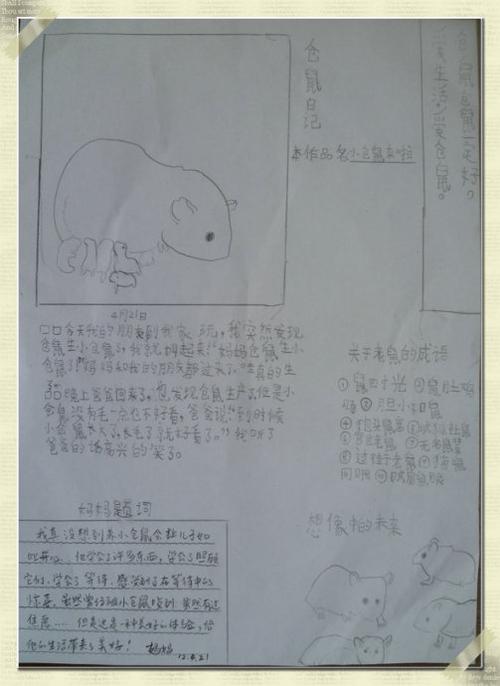 仓鼠日记
本作品名小仓鼠来啦
仓鼠仓鼠一定好。
爱生活,爱仓鼠。
4月21日
口口今天我的朋友到我家玩,我突然发现
仓鼠生小仓鼠了,我就叫起来:"妈妈仓鼠生小
仓鼠了!"妈妈和我的朋友都过来了。"哇真的生
晚上爸爸回来了,也发现仓鼠生产了,但是小
仓鼠没有毛一点也不好看,爸爸说:"到时候
小仓鼠长大了,长毛了就好看了。"我听了
爸爸的话高兴的笑了。
关于老鼠的成语
①鼠目寸光 ②鼠肚鸡
肠 ③胆小如鼠
④抱头鼠窜
⑤过街老鼠
⑥过街老鼠 ⑦猫鼠
同眠
妈妈题词
我真没想到养小仓鼠会让儿子如
此开心,他学会了许多东西,学会了照顾
它们,学会了等待,感受到了在等待中的
惊喜,虽然曾经被小仓鼠咬到,虽然有过
焦虑……但是这是一种美好的体验,给
他的生活带来了美好! 妈妈
12.4.21
想像中的未来